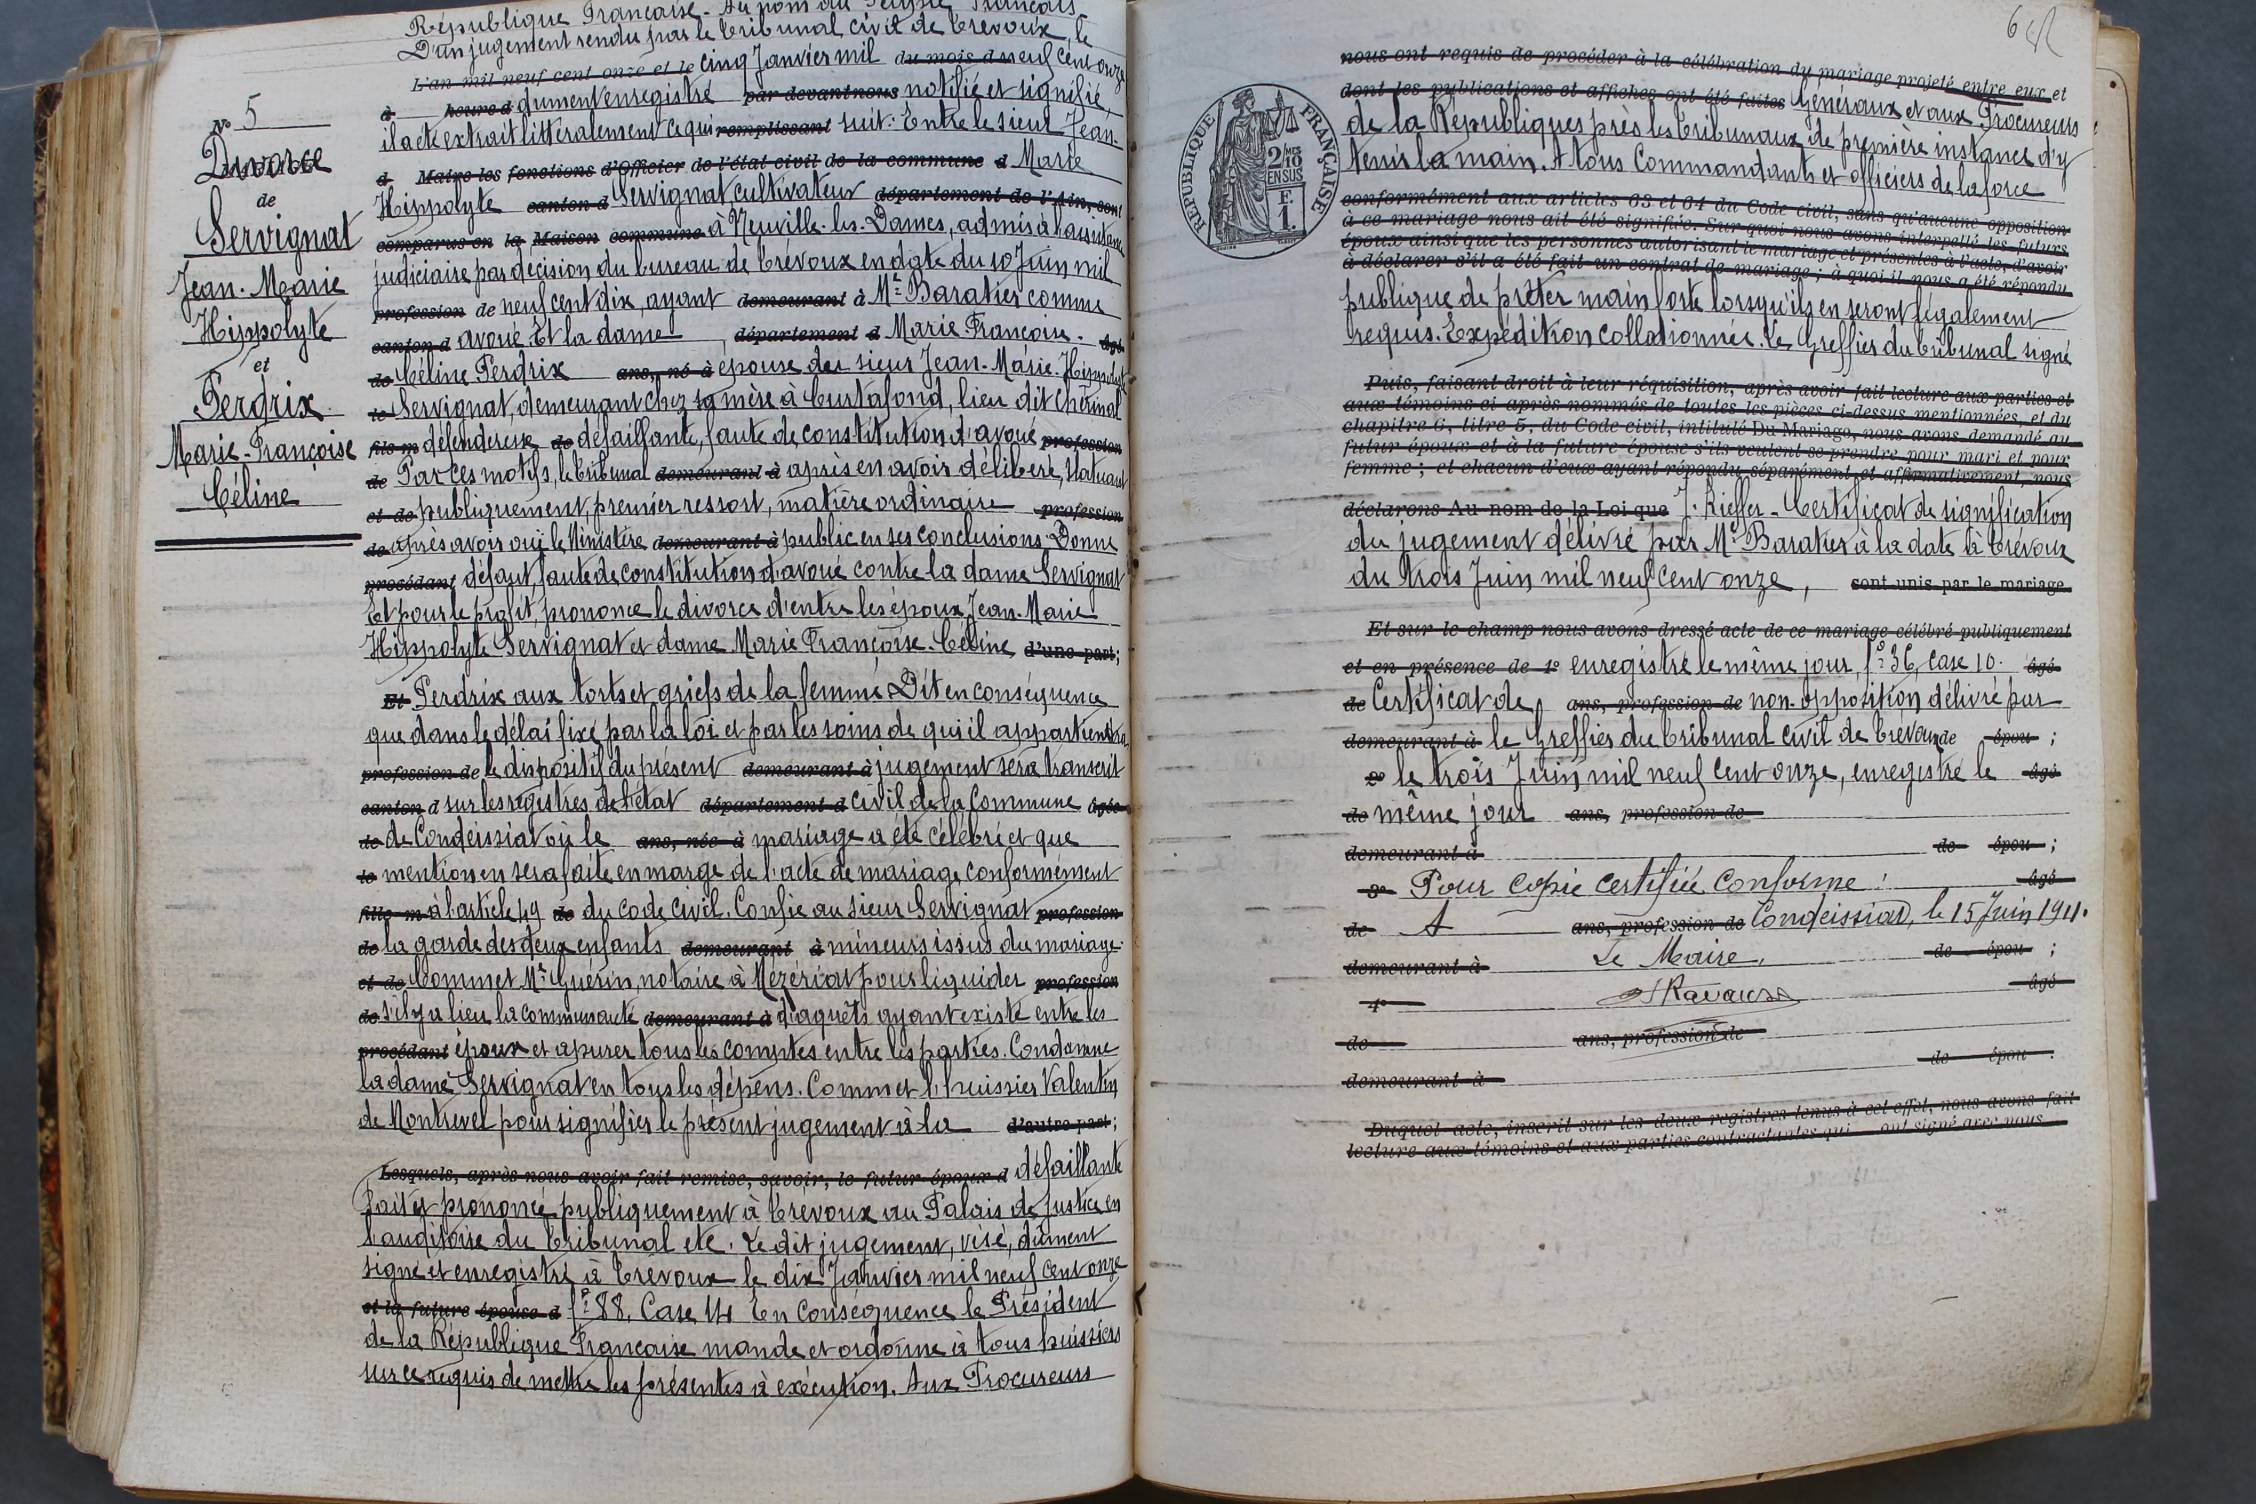 République Française - Au nom du Peuple Français
D'un jugement rendu par le tribunal civil de Trévoux, le
L'an mil neuf cent onze et le cinq Janvier mil du mois d neuf cent onze
à heure d dument enregistré par devant nous notifié et signifié,
il a été extrait littéralement ce qui remplissant suit: Entre le sieur Jean-
d Maire les fonctions d'Officier de l'état civil de la commune d Marie
Hippolyte canton d Servignat cultivateur département de l'Ain, sont
comparus en la Maison commune à Neuville-les-Dames, admis à l'assistance
judiciaire par décision du bureau de Trévoux en date du 10 Juin mil
profession de neuf cent dix, ayant demeurant à Me Baratier comme
canton d avoué Et la dame département d Marie Françoise - âgé
de Céline Perdrix ans, né à épouse du sieur Jean-Marie-Hippolyte
le Servignat, demeurant chez sa mère à Curtafond, lieu dit Chérinal
fils m défenderesse de défaillante, faute de constitution d'avoué profession
de Par ces motifs, le tribunal demeurant à après en avoir délibéré, statuant
et de publiquement, premier ressort, matière ordinaire profession
de après avoir oui le Ministère demeurant à public en ses conclusions Donne
procédant défaut, faute de constitution d'avoué contre la dame Servignat
Et pour le profit, prononce le divorce d'entre les époux Jean-Marie
Hippolyte Servignat et dame Marie Françoise-Céline d'une part;
Et Perdrix aux torts et griefs de la femme Dit en conséquence
que dans le délai fixé par la loi et par les soins de qui il appartiendra
profession de le dispositif du présent demeurant à jugement sera transcrit
canton d sur les registres de l'état département d civil de la Commune âgée
de de Condeissiat où le ans, née à mariage a été célébré et que
le mention en sera faite en marge de l'acte de mariage conformément
fille m à l'article 49 de du code civil. Confie au sieur Servignat profession
de la garde des deux enfants demeurant à mineurs issus du mariage.
et de Commet Me Guérin, notaire à Mézériat pour liquider profession
de s'il y a lieu la communauté demeurant à d'aquêts ayant existé entre les
procédant époux et apurer tous les comptes entre les parties. Condamne
la dame Servignat en tous les dépens. Commet l'huissier Valentin
de Montrevel pour signifier le présent jugement à la d'autre part;
Lesquels, après nous avoir fait remise, savoir, le futur époux d défaillante
Fait et prononcé publiquement à Trévoux au Palais de Justice en
l'auditoire du Tribunal etc. Le dit jugement, visé, dûment
signé et enregistré à Trévoux le dix Janvier mil neuf cent onze
et la future épouse d fo 88, Case 14 En conséquence le Président
de la République Française mande et ordonne à tous huissiers
sur ce requis de mettre les présentes à exécution. Aux Procureurs
No 5
Divorce
de
Servignat
Jean-Marie
Hippolyte
et
Perdrix
Marie-Françoise
Céline
6
nous ont requis de procéder à la célébration du mariage projeté entre eux et
dont les publications et affiches ont été faites Généraux et aux Procureurs
de la Républiques près les tribunaux de première instance d'y
tenir la main. A tous Commandants et officiers de la force
conformément aux articles 63 et 64 du Code civil, sans qu'aucune opposition
à ce mariage nous ait été signifiée. Sur quoi nous avons interpellé les futurs
époux ainsi que les personnes autorisant le mariage et présentes à l'acte, d'avoir
à déclarer s'il a été fait un contrat de mariage; à quoi il nous a été répondu
publique de prêter main forte lorsqu'ils en seront légalement
requis. Expédition collationnée. Le Greffier du tribunal signé
Puis, faisant droit à leur réquisition, après avoir fait lecture aux parties et
aux témoins ci-après nommés de toutes les pièces ci-dessus mentionnées, et du
chapitre 6, titre 5, du Code civil, intitulé Du Mariage, nous avons demandé au
futur époux et à la future épouse s'ils veulent se prendre pour mari et pour
femme; et chacun d'eux ayant répondu séparément et affirmativement, nous
déclarons Au nom de la Loi que J. Kieffer - Certificat de signification
du jugement délivré par Me Baratier à la date à Trévoux
du trois Juin mil neuf cent onze, sont unis par le mariage
Et sur le champ nous avons dressé acte de ce mariage célébré publiquement
et en présence de 1o enregistré le même jour, fo 36, case 10. âgé
de Certificat de ans, profession de non-opposition délivré par
demeurant à le Greffier du tribunal civil de Trévoux de épou ;
2o le trois Juin mil neuf cent onze, enregistré le âgé
de même jour ans, profession de
demeurant à de épou ;
3o Pour copie certifiée conforme: âgé
de A ans, profession de Condeissiat, le 15 Juin 1911.
demeurant à Le Maire, de épou ;
4o âgé
de ans, profession de
demeurant à de épou .
Duquel acte, inscrit sur les deux registres tenus à cet effet, nous avons fait
lecture aux témoins et aux parties contractantes qui ont signé avec nous
RÉPUBLIQUE FRANÇAISE
2/10 MES
EN SUS
F.
1.